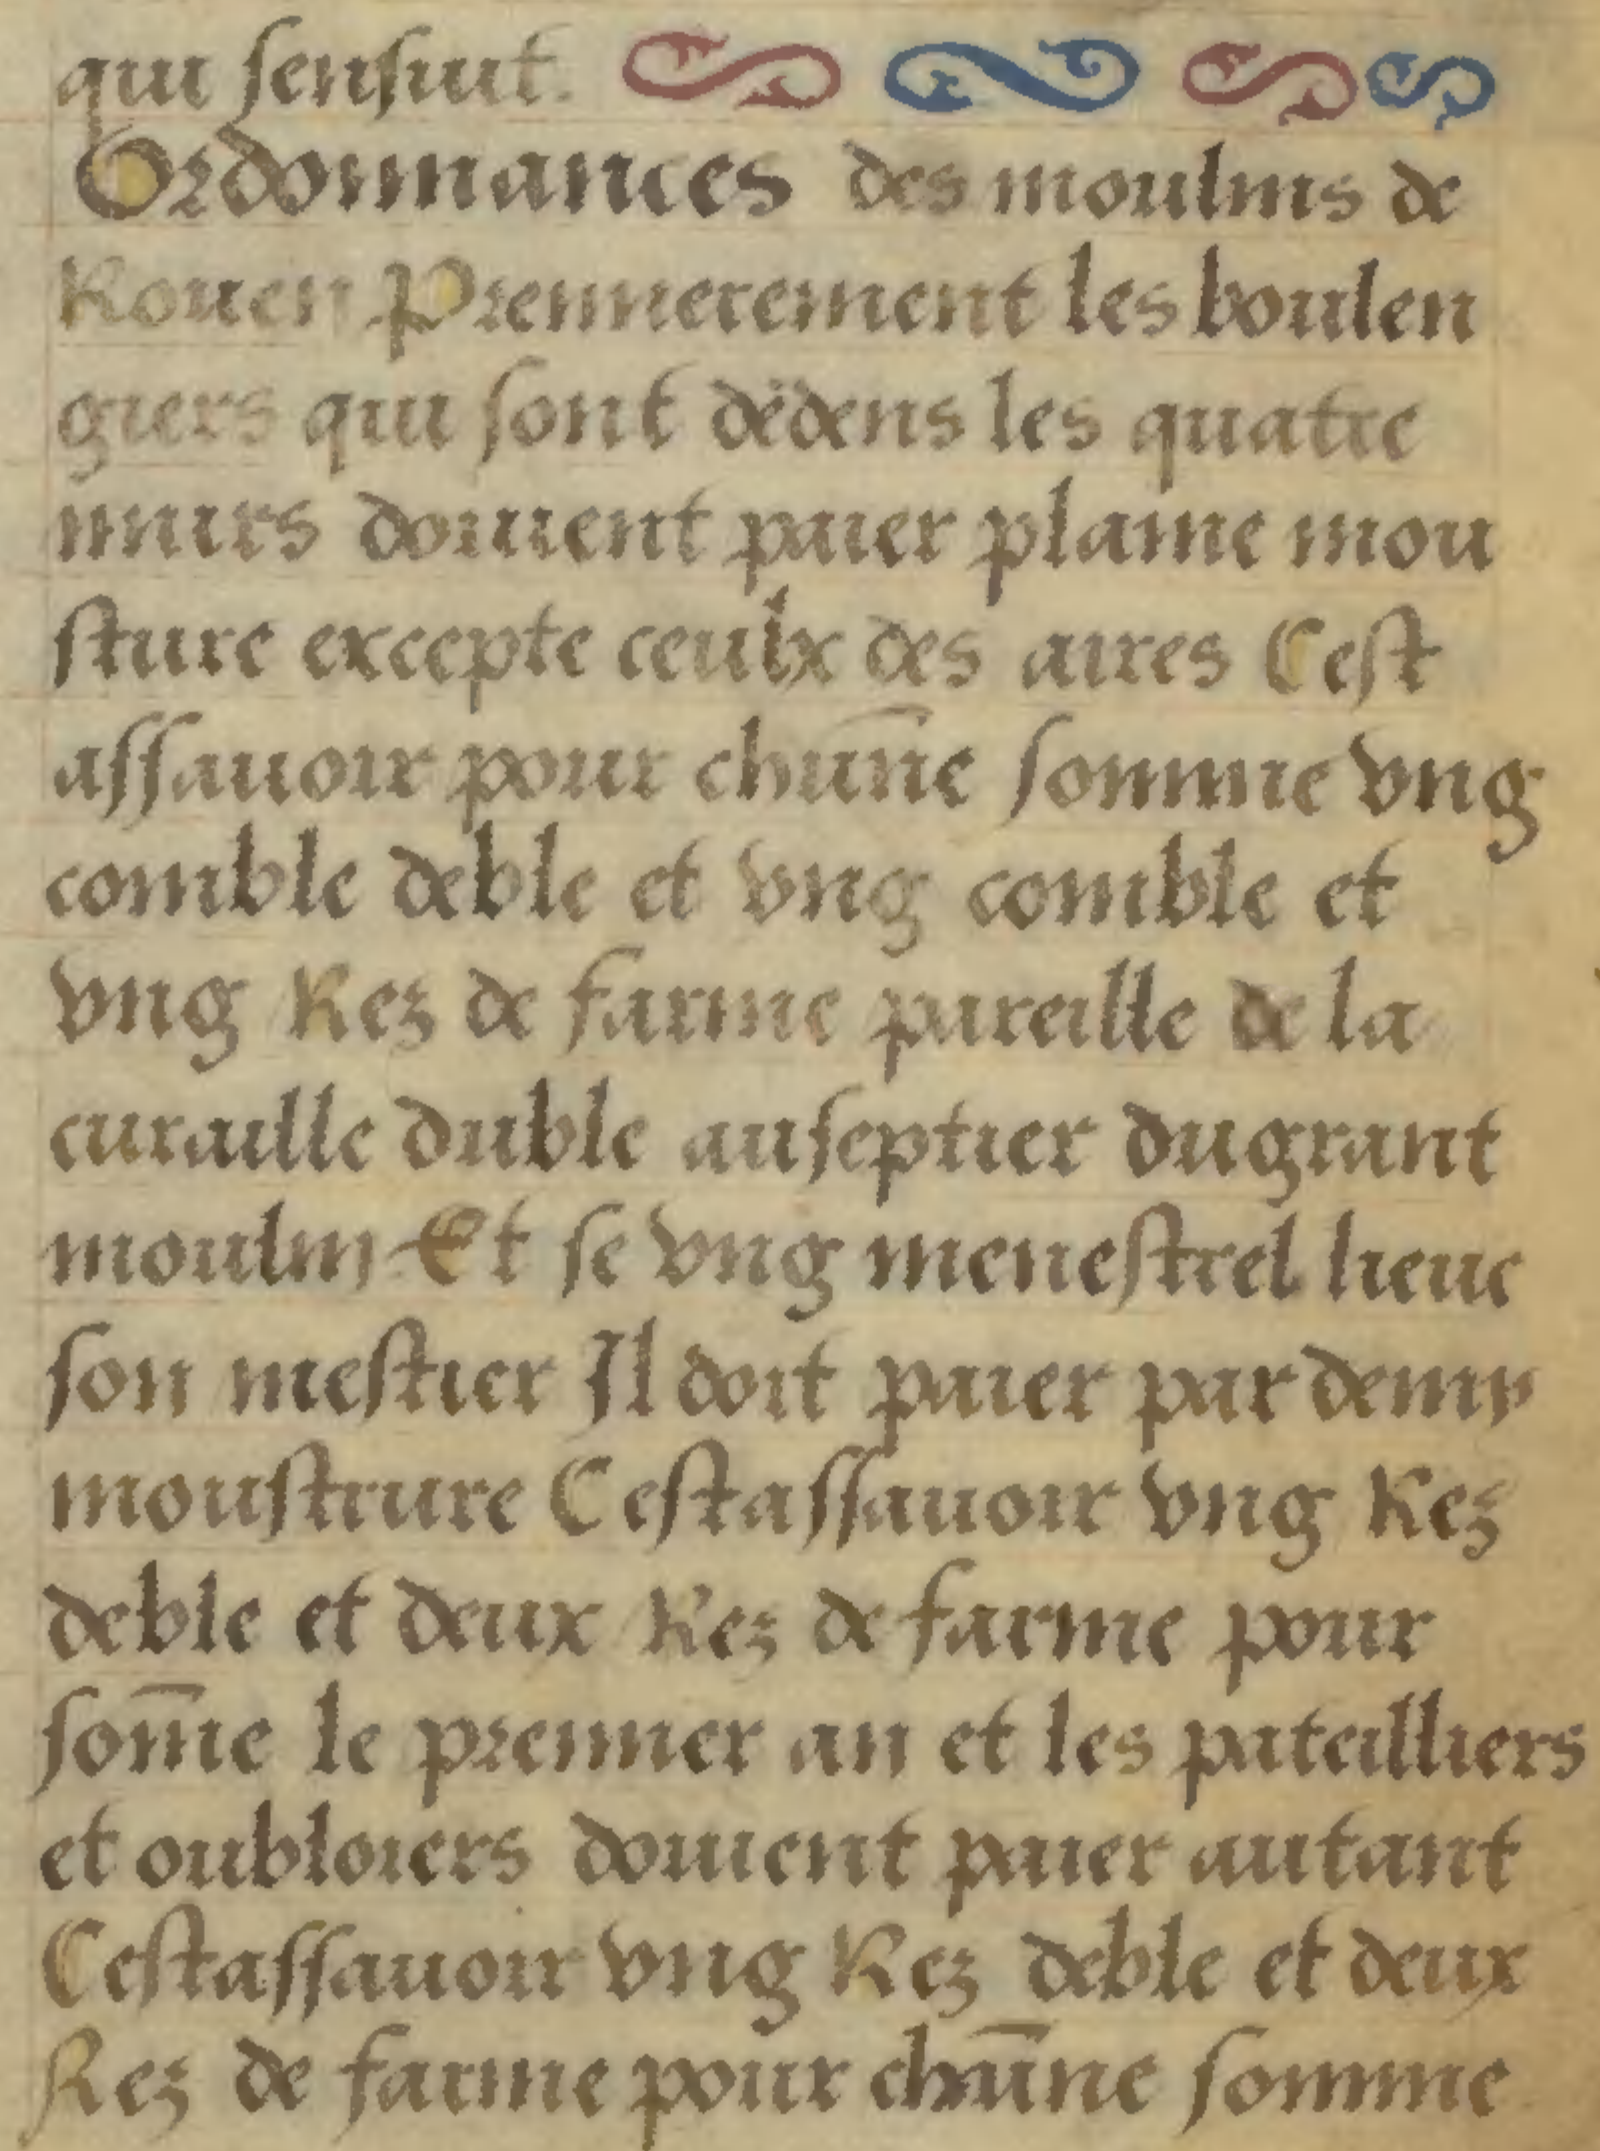 qui sensuit.
Ordonnances des moulins de
Rouen Premierement les boulen
giers qui sont dedens les quatre
murs doiuent paier plaine mou
sture excepte ceulx des aires Cest
assauoir pour chūne somme vng
comble deble et vng comble et
vng Rez de farine pareille de la
curaille duble auseptier dugrant
moulin Et se vng menestrel lieue
son mestier Il doit paier par demy
moustrure Cestassauoir vng Rez
deble et deux Rez de farine pour
som̄e le premier an et les pateilliers
et oubloiers doiuent paier autant
Cestassauoir vng Rez deble et deux
Rez de farine pour chūne somme